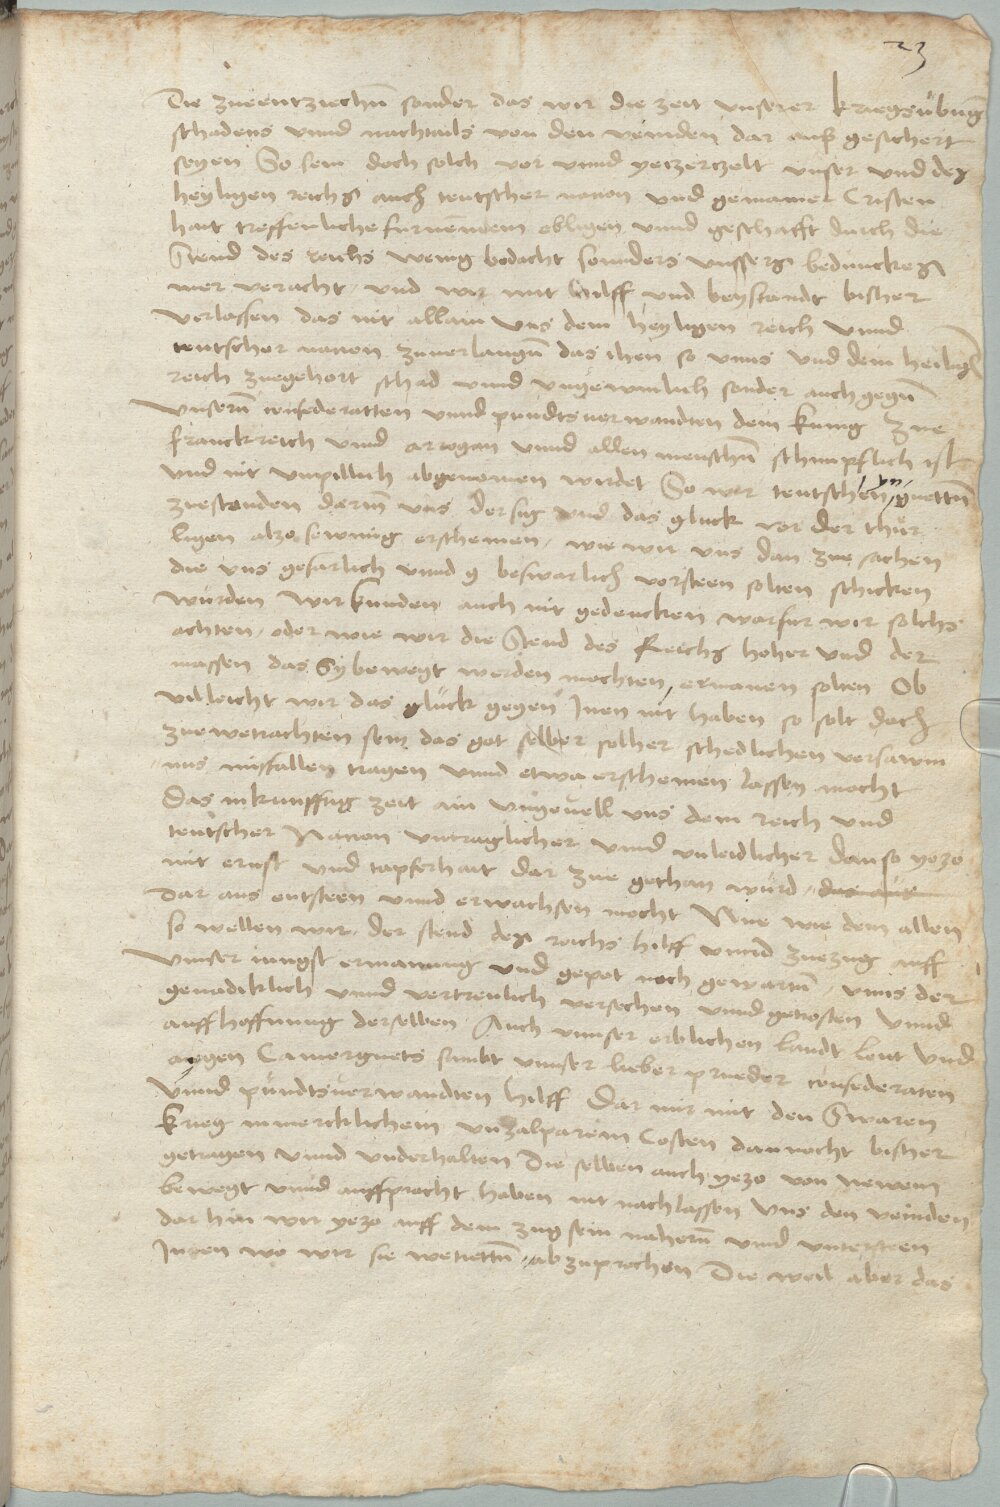 23
Die zueentziechn sonder das wir die zeit unserer kriegsübung
schadens unnd nachtails von den veinden dar auß gesichert
seyen So sein doch solch vor unnd yetzerczelt unser und des
heyligen reichs auch teutscher nacion und gemainer Cristen
hait treffenliche furnemem obligen unnd geschefft durch die
Stend des reichs wenig bedacht sonnders unssers beduncke​ns
mer veracht, und wir mit hilff und beystandt bisher
verlassen das nit allain uns dem heyligen reich unnd
teutscher nacion zuuerlangn das ihen so unns und dem heilign
reich zuegehort schad unnd ungewinlich sonder auch gegn
unsern confederatten unnd pundtsverwandten dem kunig zue
franckreich unnd arrogan unnd allen menschn schimpflich ist
und nit unpillich abgenomen wirdet So wir teutschen
zuestanden darin uns der sig und das gluck vor der thür
ligen also sewmig erscheinen, wie wir uns dan zue sachen
die uns gefarlich unnd beswarlich vorsteen solten schicken
wurden Wir kunden auch nit gedencken warfur wir solchs
achten, oder wie wir die Stend des Reichs hoher und der
massen das Sy bewegt werden mochten, ermanen solten Ob
villeicht wir das glück gegen Inen nit haben so solt doch
zuewetrachten sein das got selber solher schedlichen versawm
nus missfallen tragen unnd etwa erscheinen lassen mocht
Das in kunfftig zeit ain ungevell uns dem reich und
teutscher Nacion untraglicher unnd unleidlicher dan so yezo
mit ernst und tapferhait dar zue gethan würd,
dar aus entsteen unnd erwachsen mocht Nue wie dem allen
so wellen wir, der stend des reichs hilff unnd zuezug auff
unnser iungst ermanung und gepot noch gewartn, unns der
genadiklich unnd vertreulich versechen unnd getrosten Unnd
auff hoffnung derselben Auch unnser erblichen landt leut und
aygen Camerguets sambt unnser lieber prueder confederaten
unnd pundtsverwandten hilff Dar mir mit den Swaren
krieg in mercklichem unzalparem Costen dannocht bisher
getragen unnd underhalten Die selben auch yezo von newem
bewegt unnd auffpracht haben nit nachlassen uns den veinden
dar hin wir yezo auff dem zug sein nahern unnd understeen
Innen wo wir sie wetrettn, abzuprechen Die weil aber das